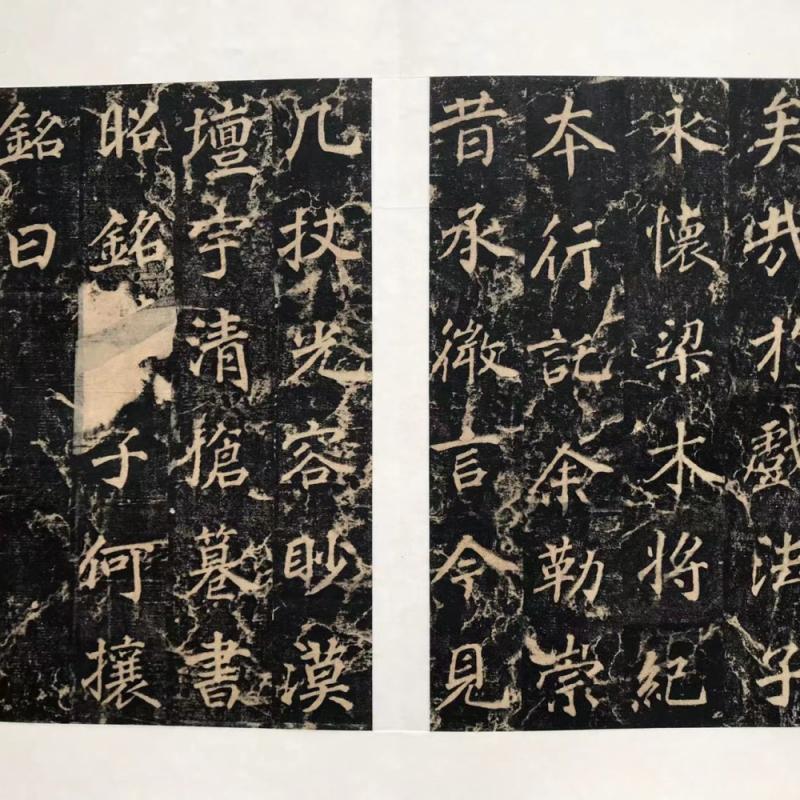 矣哉於戲法子
永懷梁木將紀
本行託余勒崇
昔承微言今見
几杖光容眇漠
壇宇清愴墓書
昭銘子何攘
銘曰